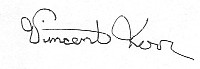 Vincent Korr